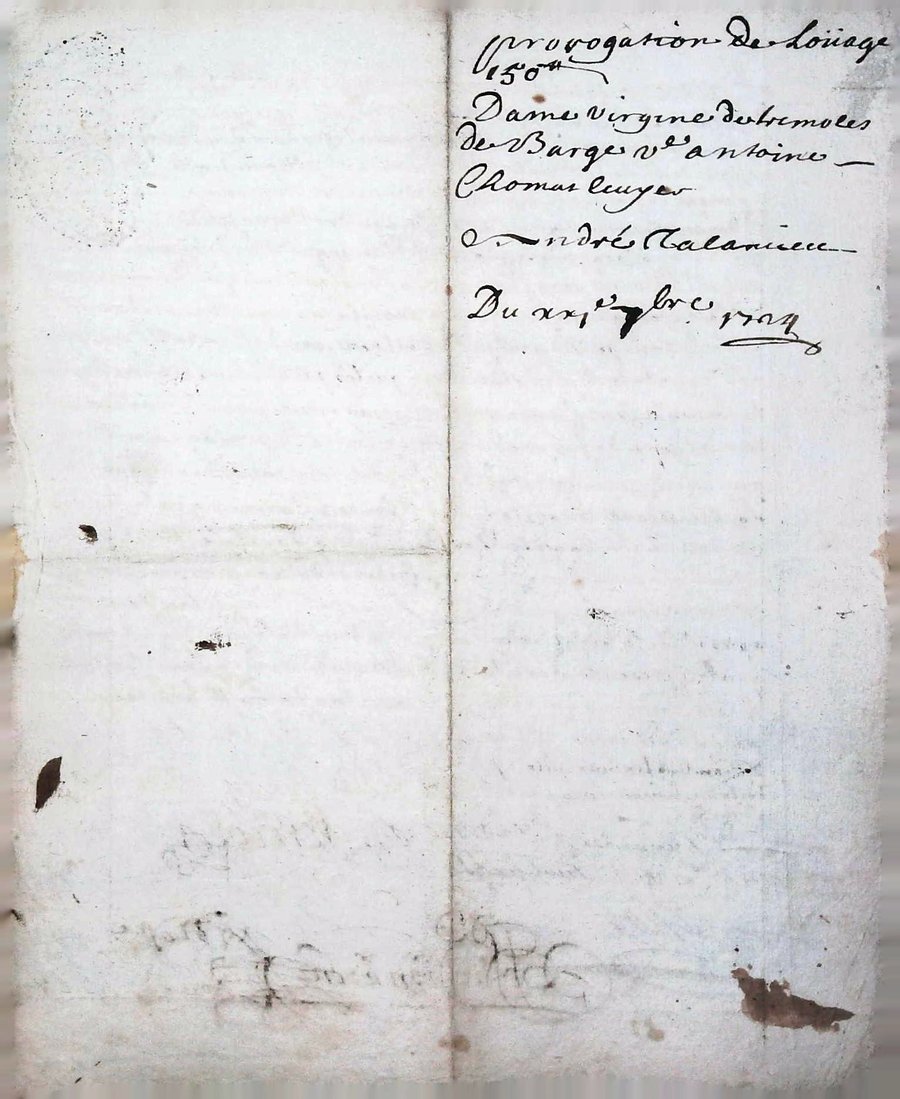 prorogation de Loüage
150ᵗᵗ
Dame virgine de tremoles
de Barge vᵉ antoine
Chomat Ecuyer
André
Du xxiᵉ 7bre 1724